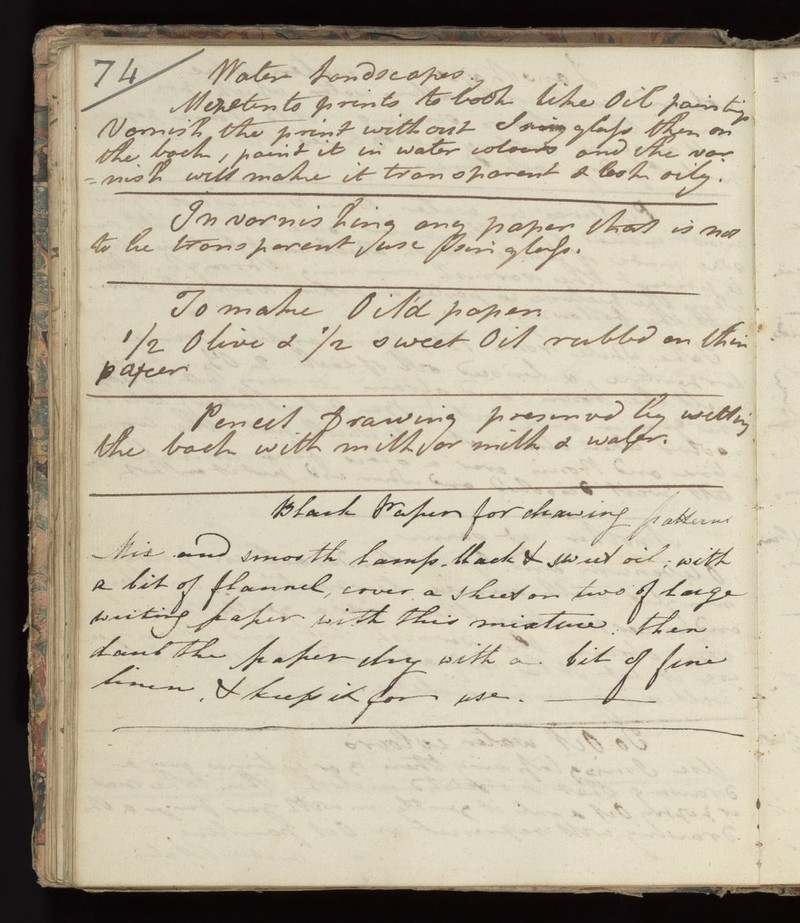 74/ Water Landscapes.
Mezetento prints to look like Oil paintings
Varnish the print without Isinglass then on
the back, paint it in water colours and the var
=nish will make it transparent & look oily.
In varnishing any paper that is not
to be transparent, use Isinglass.
To make Oil'd paper
1/2 Olive & 1/2 sweet Oil rubbd on thin
paper
Pencil Drawing preserved by wetting
the back with milk, or milk & water.
Black Paper for drawing patterns
Mix and smooth lamp-black & sweet oil; with
a bit of flannel, cover a sheet or two of large
writing paper with this mixture; then
daub the paper dry with a bit of fine
linen, & keep it for use.
To Oil water colours